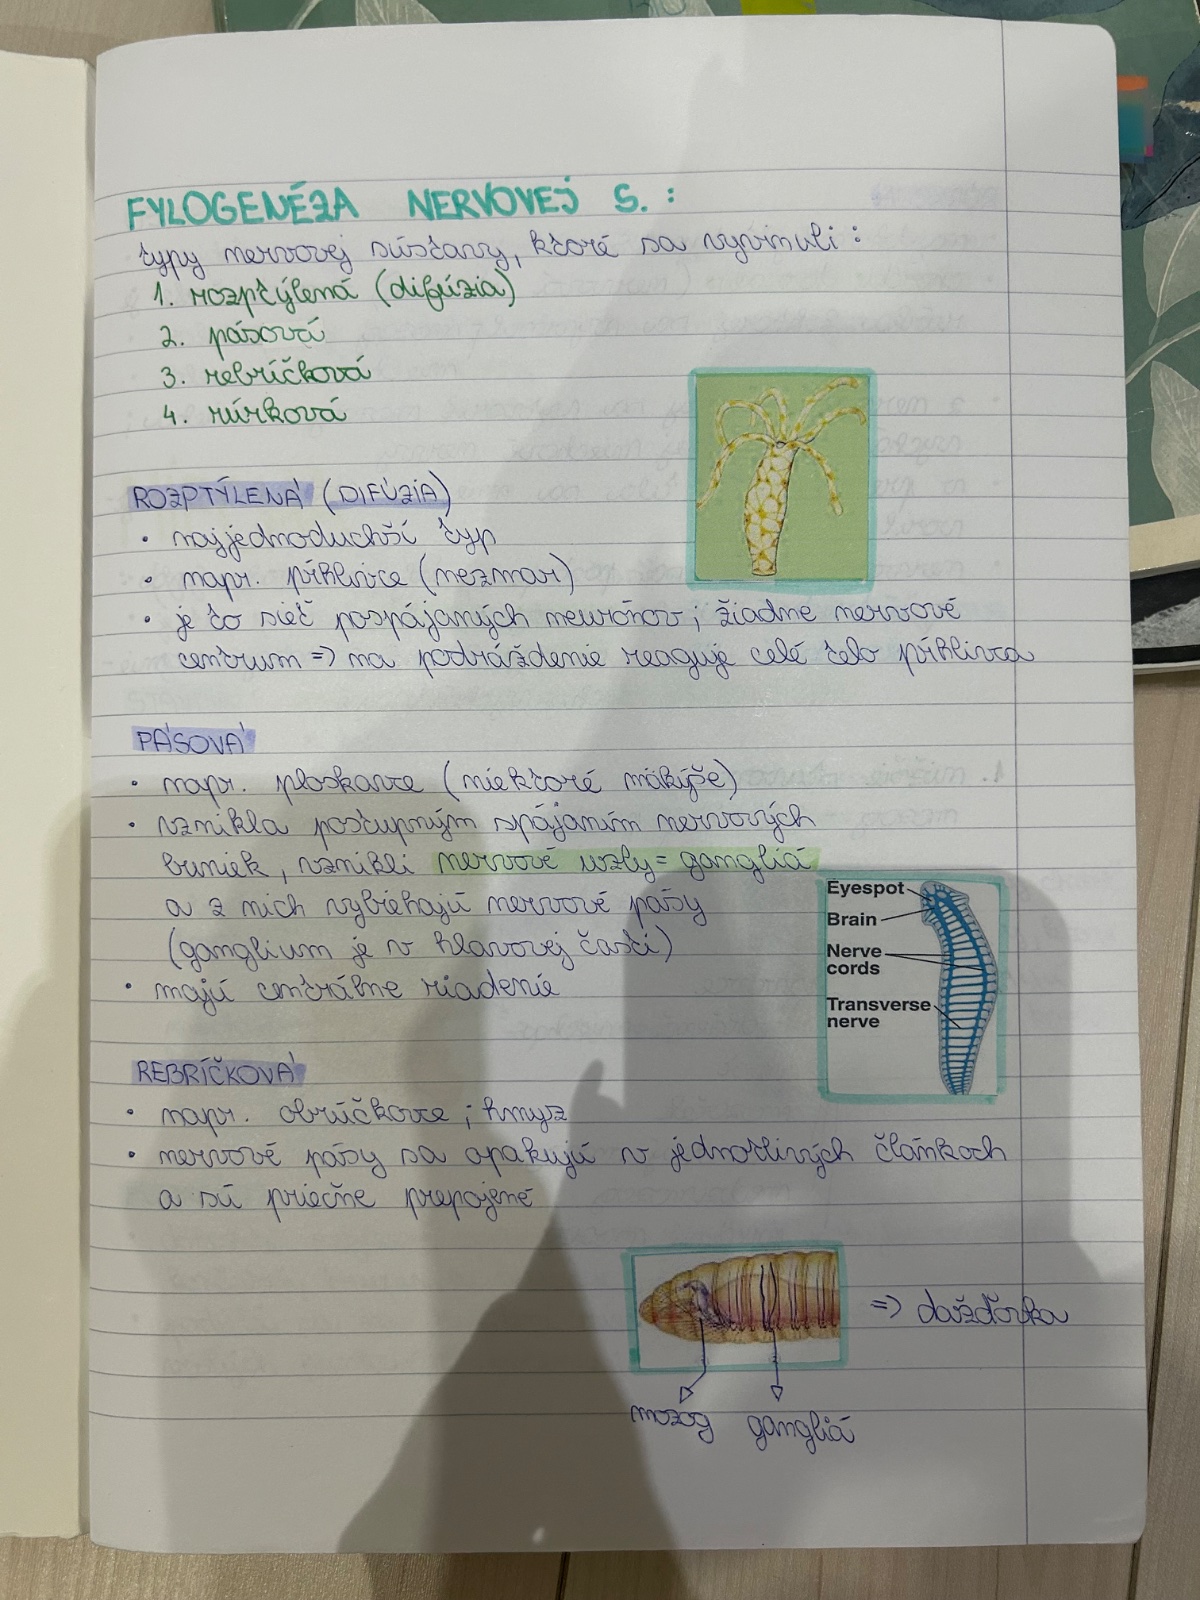 FYLOGENÉZA NERVOVEJ S. :
typy nervovej sústavy, ktoré sa vyvinuli :
1. rozptýlená (difúzia)
2. pásová
3. rebríčková
4. rúrková
ROZPTÝLENÁ (DIFÚZIA)
• najjednoduchší typ
• napr. pŕhlivce (nezmar)
• je to sieť pospájaných neurónov ; žiadne nervové
centrum => na podráždenie reaguje celé telo pŕhlivca
PÁSOVÁ
• napr. ploskavce (niektoré mäkýše)
• vznikla postupným spájaním nervových
buniek, vznikli nervové uzly = gangliá
a z nich vybiehajú nervové pásy
(ganglium je v hlavovej časti)
• majú centrálne riadenie
Eyespot
Brain
Nerve
cords
Transverse
nerve
REBRÍČKOVÁ
• napr. obrúčkavce ; hmyz
• nervové pásy sa opakujú v jednotlivých článkoch
a sú priečne prepojené
=> dažďovka
mozog gangliá